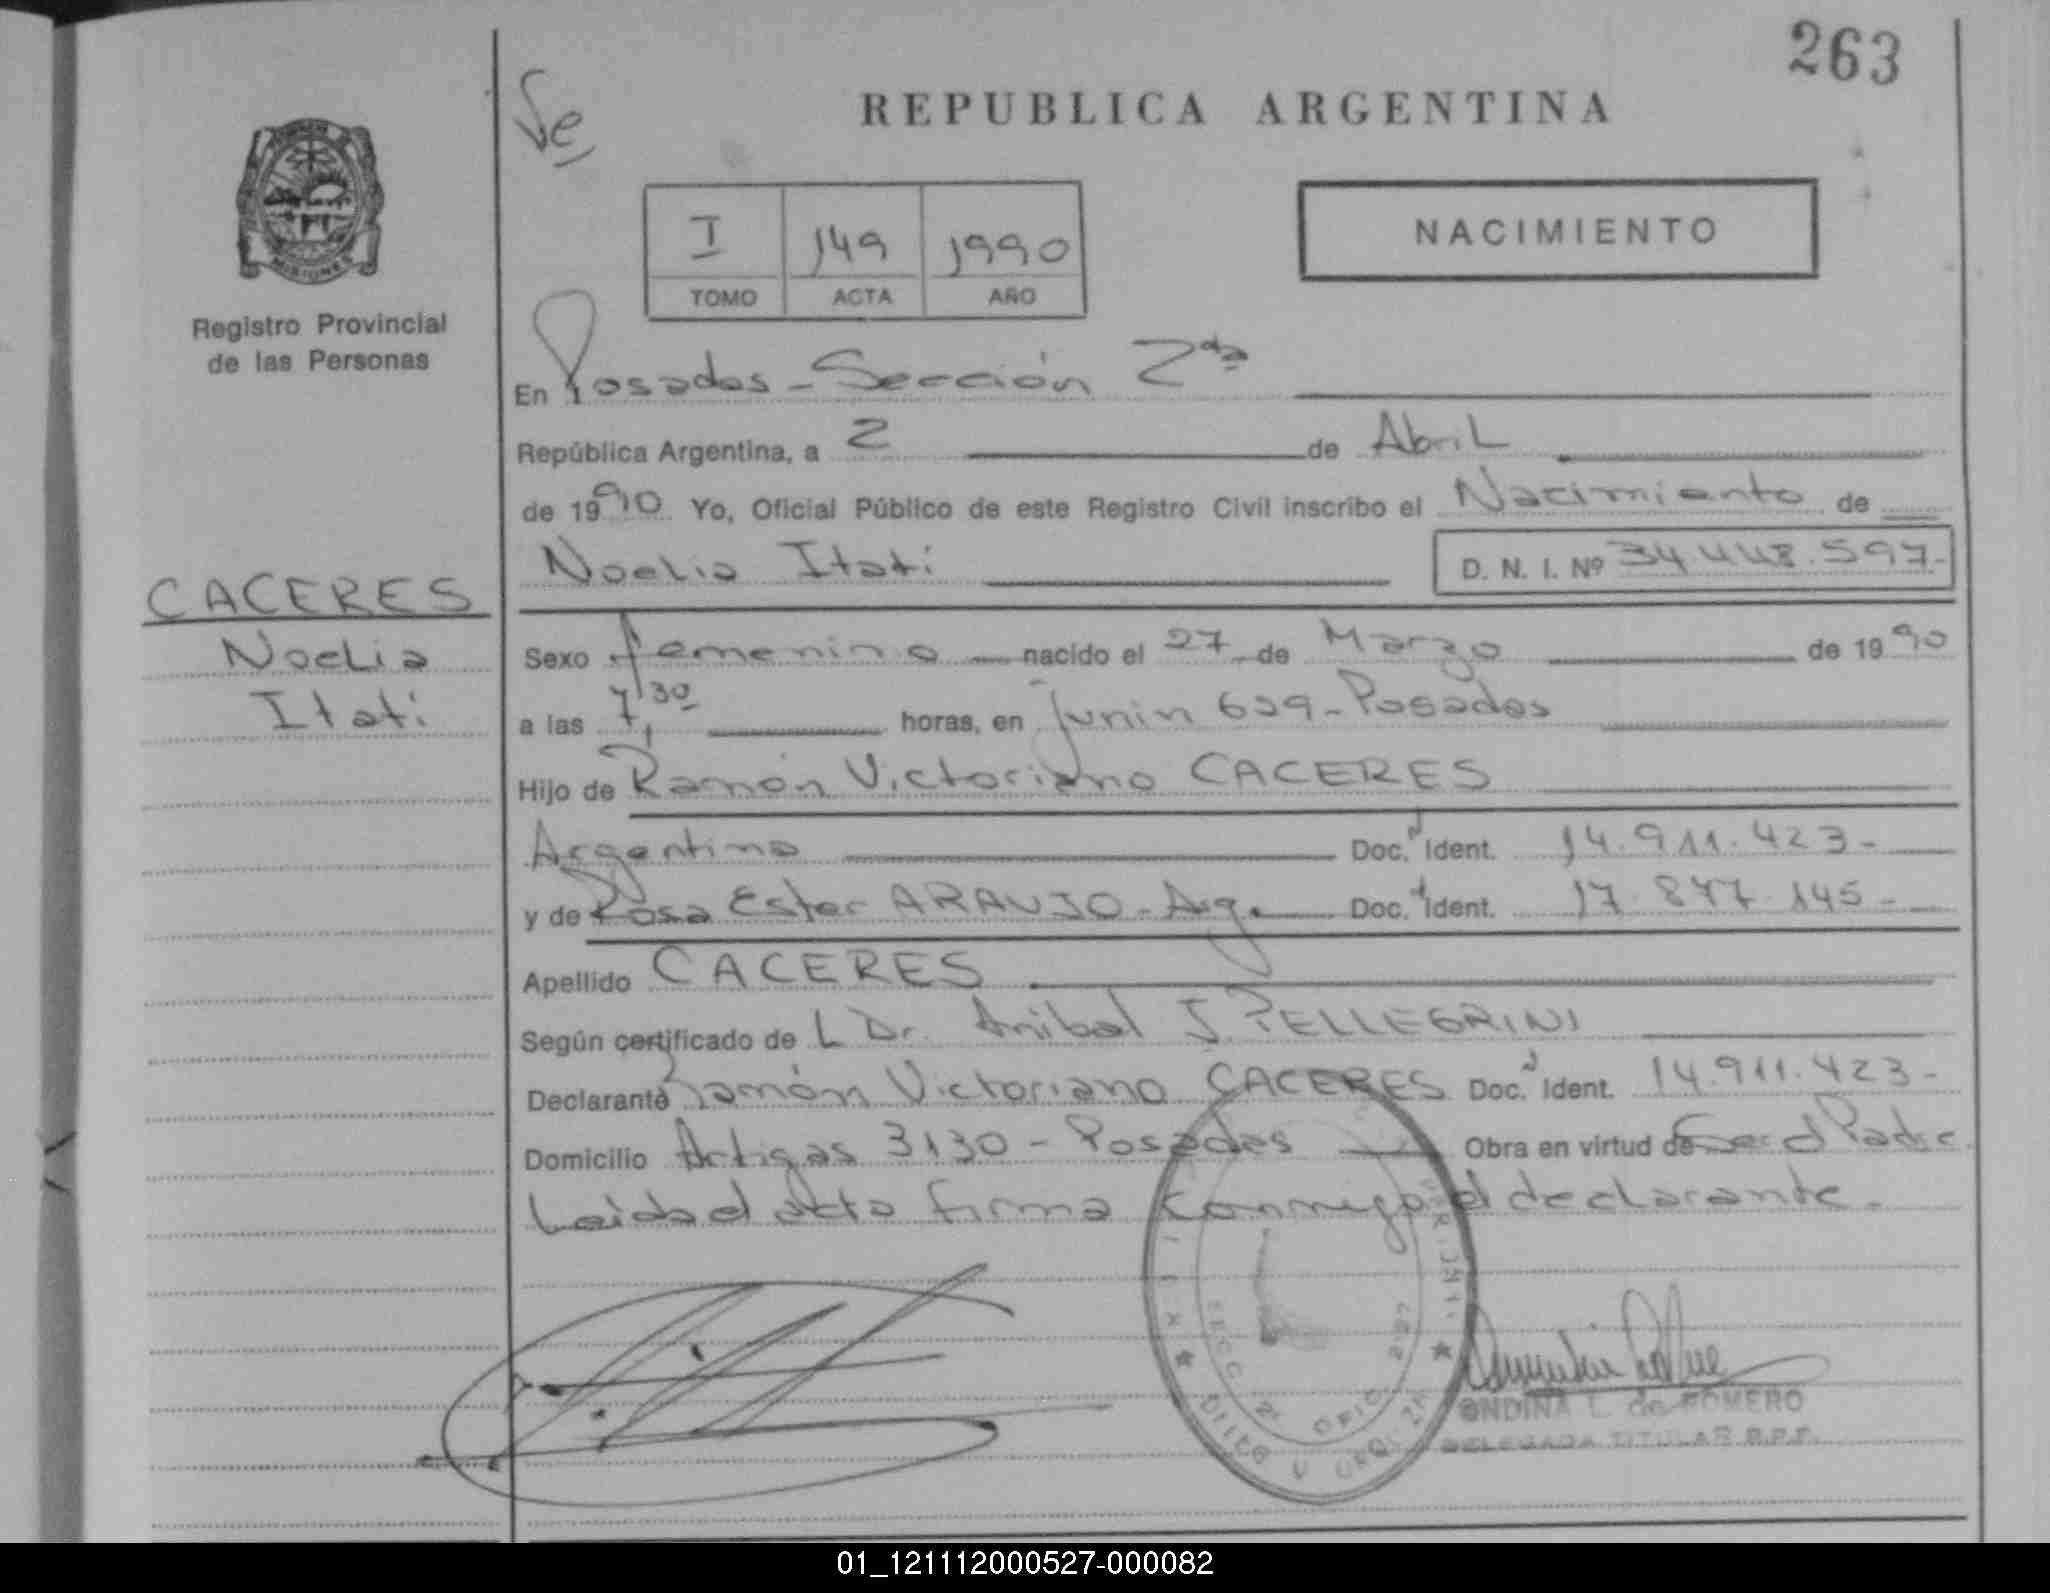 263
Se
REPUBLICA ARGENTINA
I 149 1990
TOMO ACTA AÑO
NACIMIENTO
MISIONES
Registro Provincial
de las Personas
CACERES
Noelia
Itatí
En Posadas - Sección 2da
República Argentina, a 2 de Abril
de 1990 Yo, Oficial Público de este Registro Civil inscribo el Nacimiento de
Noelia Itatí D. N. I. Nº 34.448.597-
Sexo femenino nacido el 27 de Marzo de 1990
a las 7,30 horas, en Junin 629 - Posadas
Hijo de Ramón Victoriano CACERES
Argentino Doc. Ident. 14.911.423-
y de Rosa Ester ARAUJO - Arg. Doc. Ident. 17.877.145-
Apellido CACERES
Según certificado de L Dr. Anibal J. PELLEGRINI
Declarante Ramón Victoriano CACERES Doc. Ident. 14.911.423-
Domicilio Artigas 3130 - Posadas Obra en virtud de Ser el Padre.
Leida el acta firma conmigo el declarante.
SECC 2ª OFIC 227
URQUIZA
ONDINA L. de ROMERO
DELEGADA TITULAR R.P.P.
01_121112000527-000082